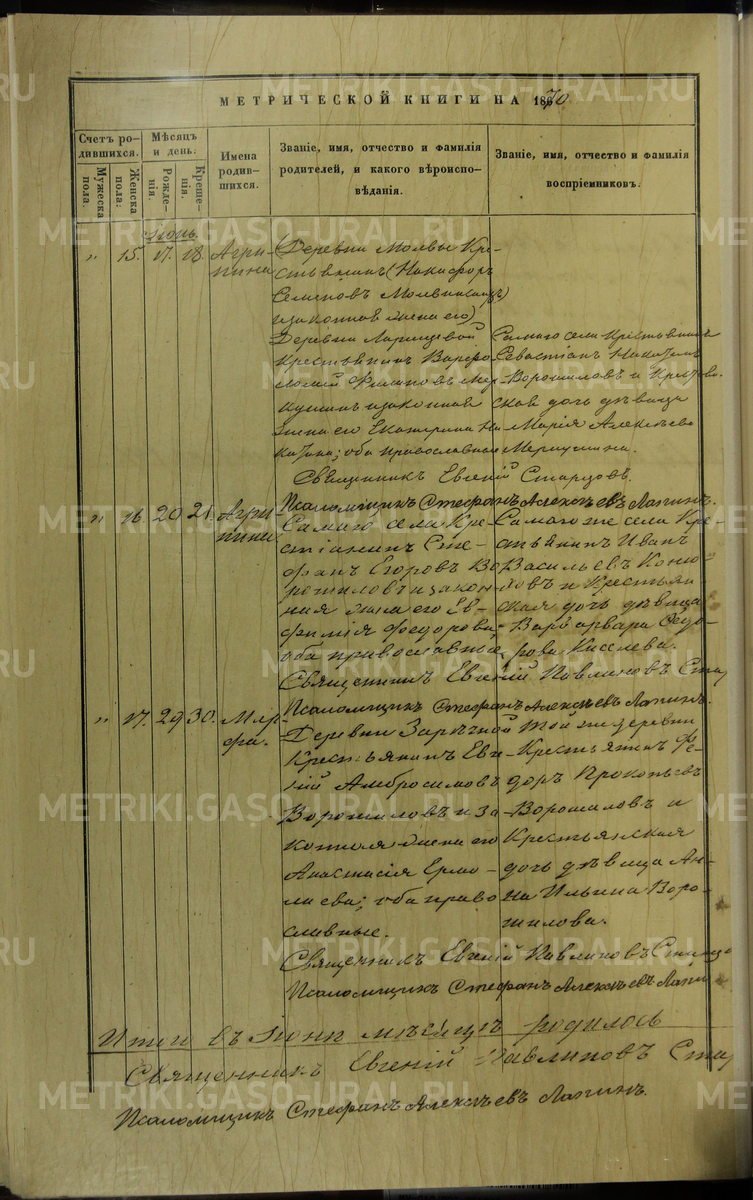 МЕТРИЧЕСКОЙ КНИГИ НА 1870
Счетъ ро-
дившихся.
Мужеска
пола.
Женска
пола:
Мѣсяцъ
и день:
Рожде-
нія.
Креще-
нія.
Имена
родив-
шихся.
Званіе, имя, отчество и фамилія
родителей, и какого вѣроиспо-
вѣданія.
Званіе, имя, отчество и фамилія
воспріемниковъ.
Іюнь
" 15. 17. 18. Агри-
пина
Деревни Молвы Кре-
стьянинъ (Никифоръ
Семеновъ
изаконная жена его)
Деревни
Крестьянинъ Варѳо-
ломій Филиповъ Мер-
кушинъ изаконная
жена его Екатерина
оба православные
Самаго села Крестьянинъ
Севастіанъ
Ворошиловъ и Крестьян-
ская дочь дѣвица
Марія Алексѣева
Меркушина.
Священникъ Евгеній Старцовъ.
Псаломщикъ Стефанъ Алексѣевъ Лапинъ.
" 16. 20 21. Агри-
пина
Самаго села Кре-
стіанинъ Сте-
фанъ Егоровъ Во-
рошиловъ изакон-
ная жена его Ев-
фимія Федорова,
оба православные
Самаго же села Кре-
стьянинъ Иванъ
Васильевъ
и Крестьян-
ская дочь дѣвица
Варвара Федо-
рова Киселева.
Священникъ Евгеній Павлиновъ Ста
Псаломщикъ Стефанъ Алексѣевъ Лапинъ.
" 17. 29 30. Мар-
фа.
Деревни Зарѣчной
Крестьянинъ Евге-
ній Амбросимовъ
Ворошиловъ и за-
конная жена его
Анастасія Ермо-
лаева; оба право-
славные.
Той же деревни
Крестьянинъ Ѳе-
доръ Прокопьевъ
Ворошиловъ и
Крестьянская
дочь дѣвица Ан-
на Ильина Воро-
шилова.
Священникъ Евгеній Павлиновъ Старцо
Псаломщикъ Стефанъ Алексѣевъ Лапи
Итого въ Іюнѣ мѣсяцѣ родилось
Священникъ Евгеній Павлиновъ Стар
Псаломщикъ Стефанъ Алексѣевъ Лапинъ.
METRIKI.GASO-URAL.RU